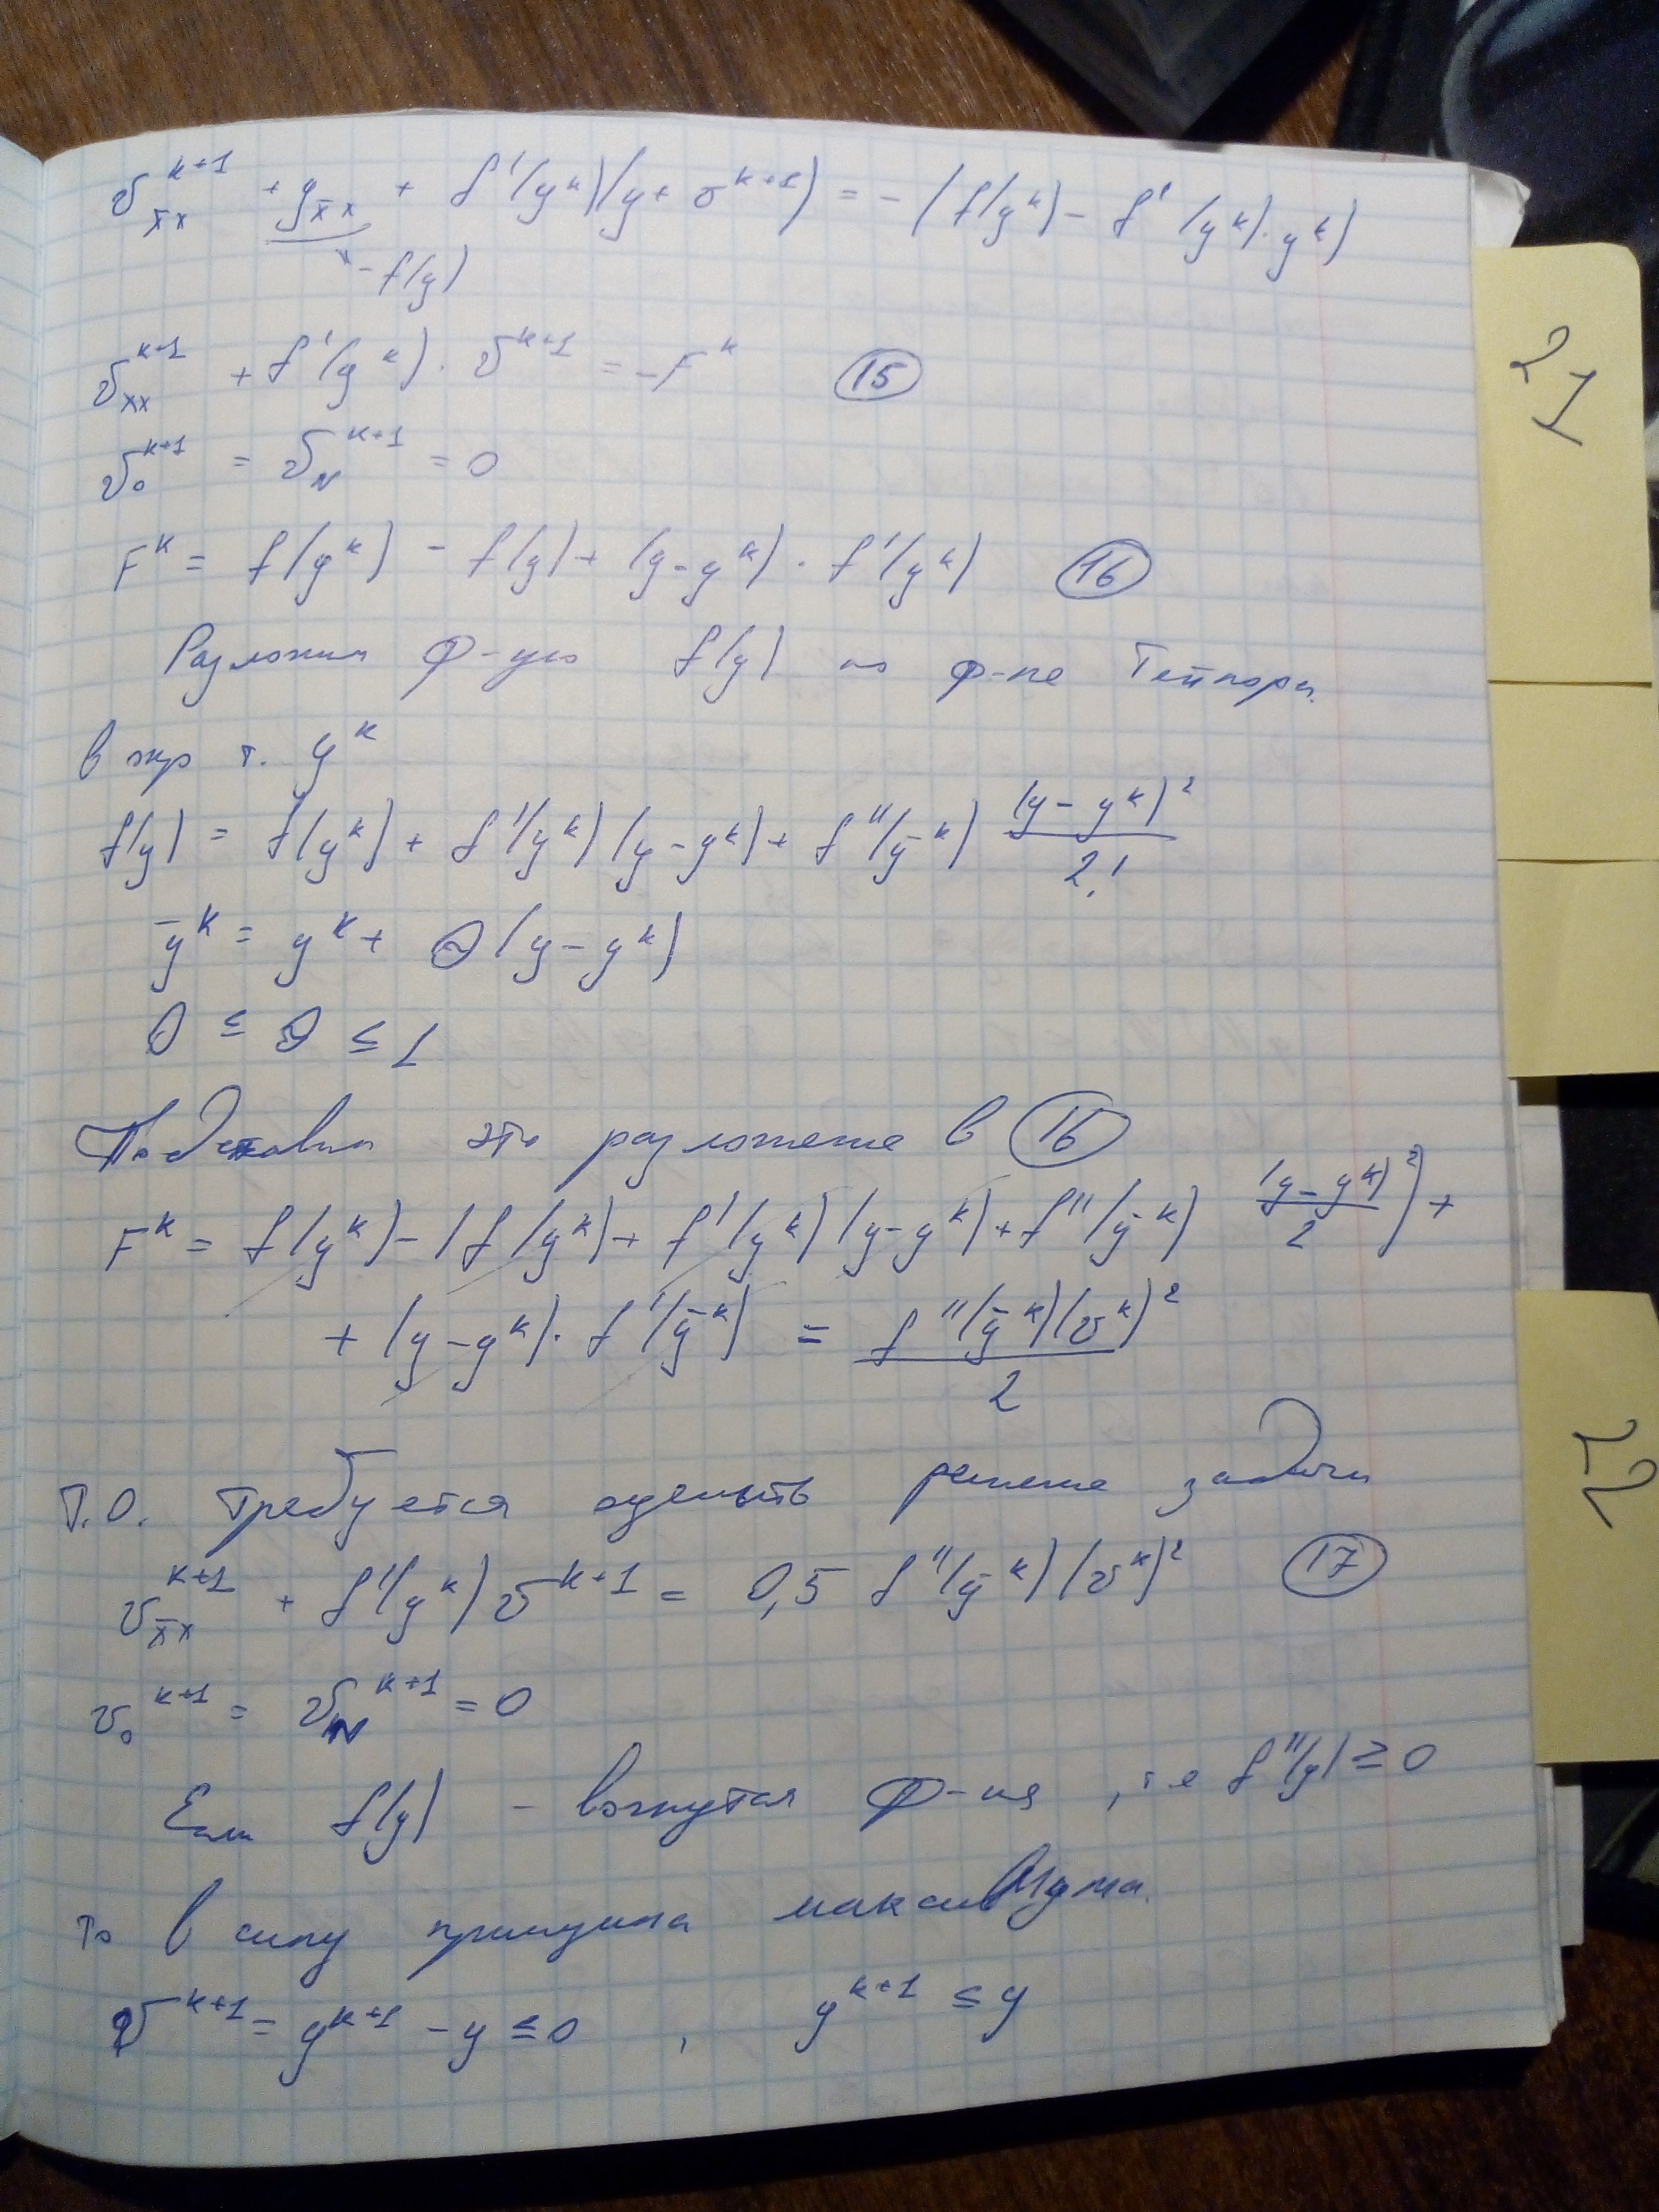 v_{x̄x}^{k+1} + y_{x̄x} + f'(y^k)(y + v^{k+1}) = -(f(y^k) - f'(y^k)·y^k)
-f(y)
v_{xx}^{k+1} + f'(y^k)·v^{k+1} = -F^k (15)
v_0^{k+1} = v_N^{k+1} = 0
F^k = f(y^k) - f(y) + (y - y^k)·f'(y^k) (16)
Разложим ф-цию f(y) по ф-ле Тейлора
в окр т. y^k
f(y) = f(y^k) + f'(y^k)(y - y^k) + f''(ȳ^k) (y - y^k)^2 / 2!
ȳ^k = y^k + θ(y - y^k)
0 ≤ θ ≤ 1
Подставим это разложение в (16)
F^k = f(y^k) - (f(y^k) + f'(y^k)(y - y^k) + f''(ȳ^k) (y - y^k)^2 / 2) +
+ (y - y^k)·f'(ȳ^k) = f''(ȳ^k)(v^k)^2 / 2
Т.О. требуется оценить решение задачи
v_{x̄x}^{k+1} + f'(y^k) v^{k+1} = 0,5 f''(ȳ^k)(v^k)^2 (17)
v_0^{k+1} = v_N^{k+1} = 0
Если f(y) - вогнутая ф-ия, т.е f''(y) ≥ 0
то в силу принципа максимума
v^{k+1} = y^{k+1} - y ≤ 0, y^{k+1} ≤ y
21
22